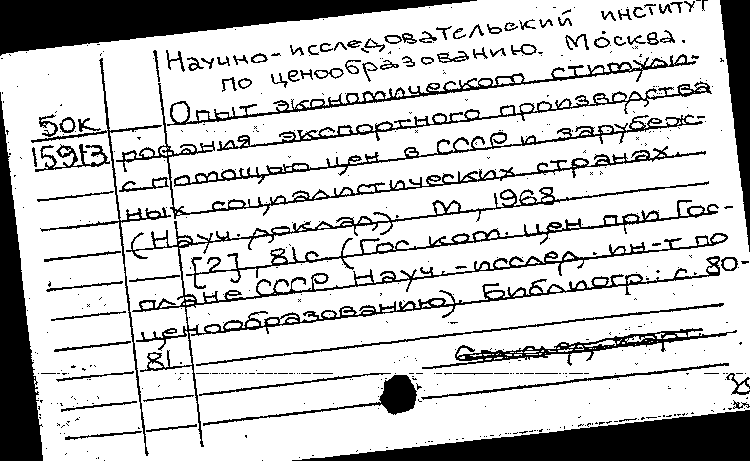 Научно-исследовательский институт
по ценообразованию. Москва.
50к
15913
Опыт экономического стимули-
рования экспортного производства
с помощью цен в СССР и зарубеж-
ных социалистических странах.
(Науч. доклад). М., 1968
[2], 81с. (Гос. ком. цен при Гос-
плане СССР. Науч.-исслед. ин-т по
ценообразованию). Библиогр.: с. 80-
81.
См. след. карт.